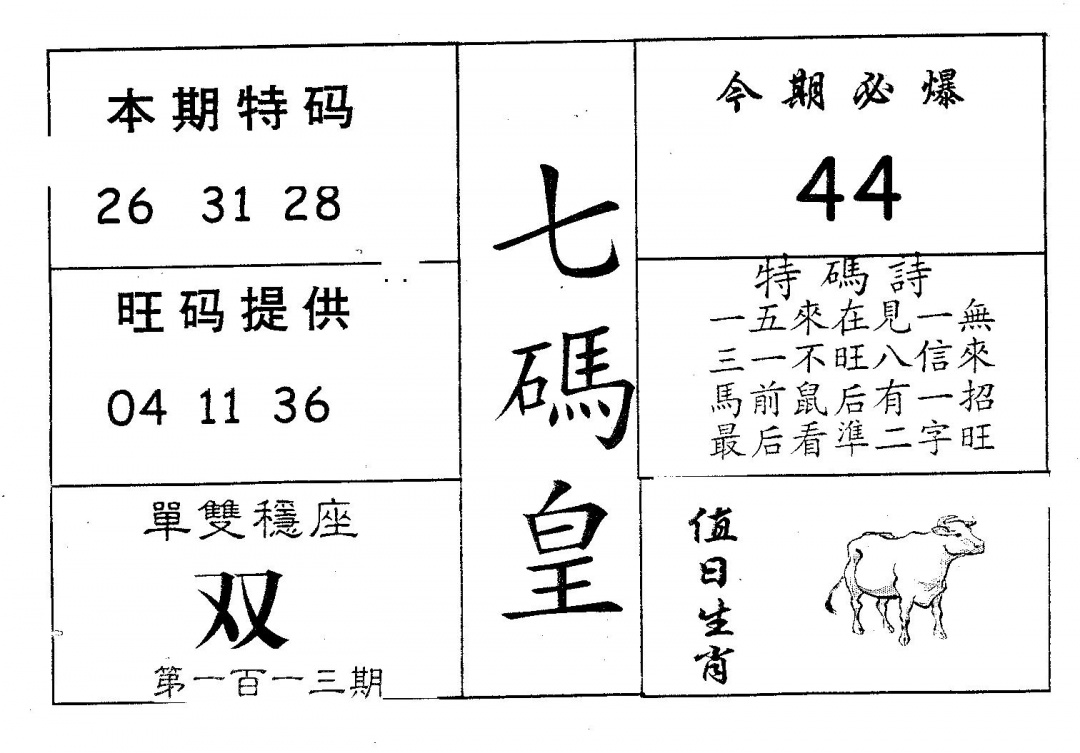 本期特码
26 31 28
旺码提供
04 11 36
單雙穩座
双
第一百一三期
七碼皇
今期必爆
44
特碼詩
一五來在見一無
三一不旺八信來
馬前鼠后有一招
最后看準二字旺
值日生肖